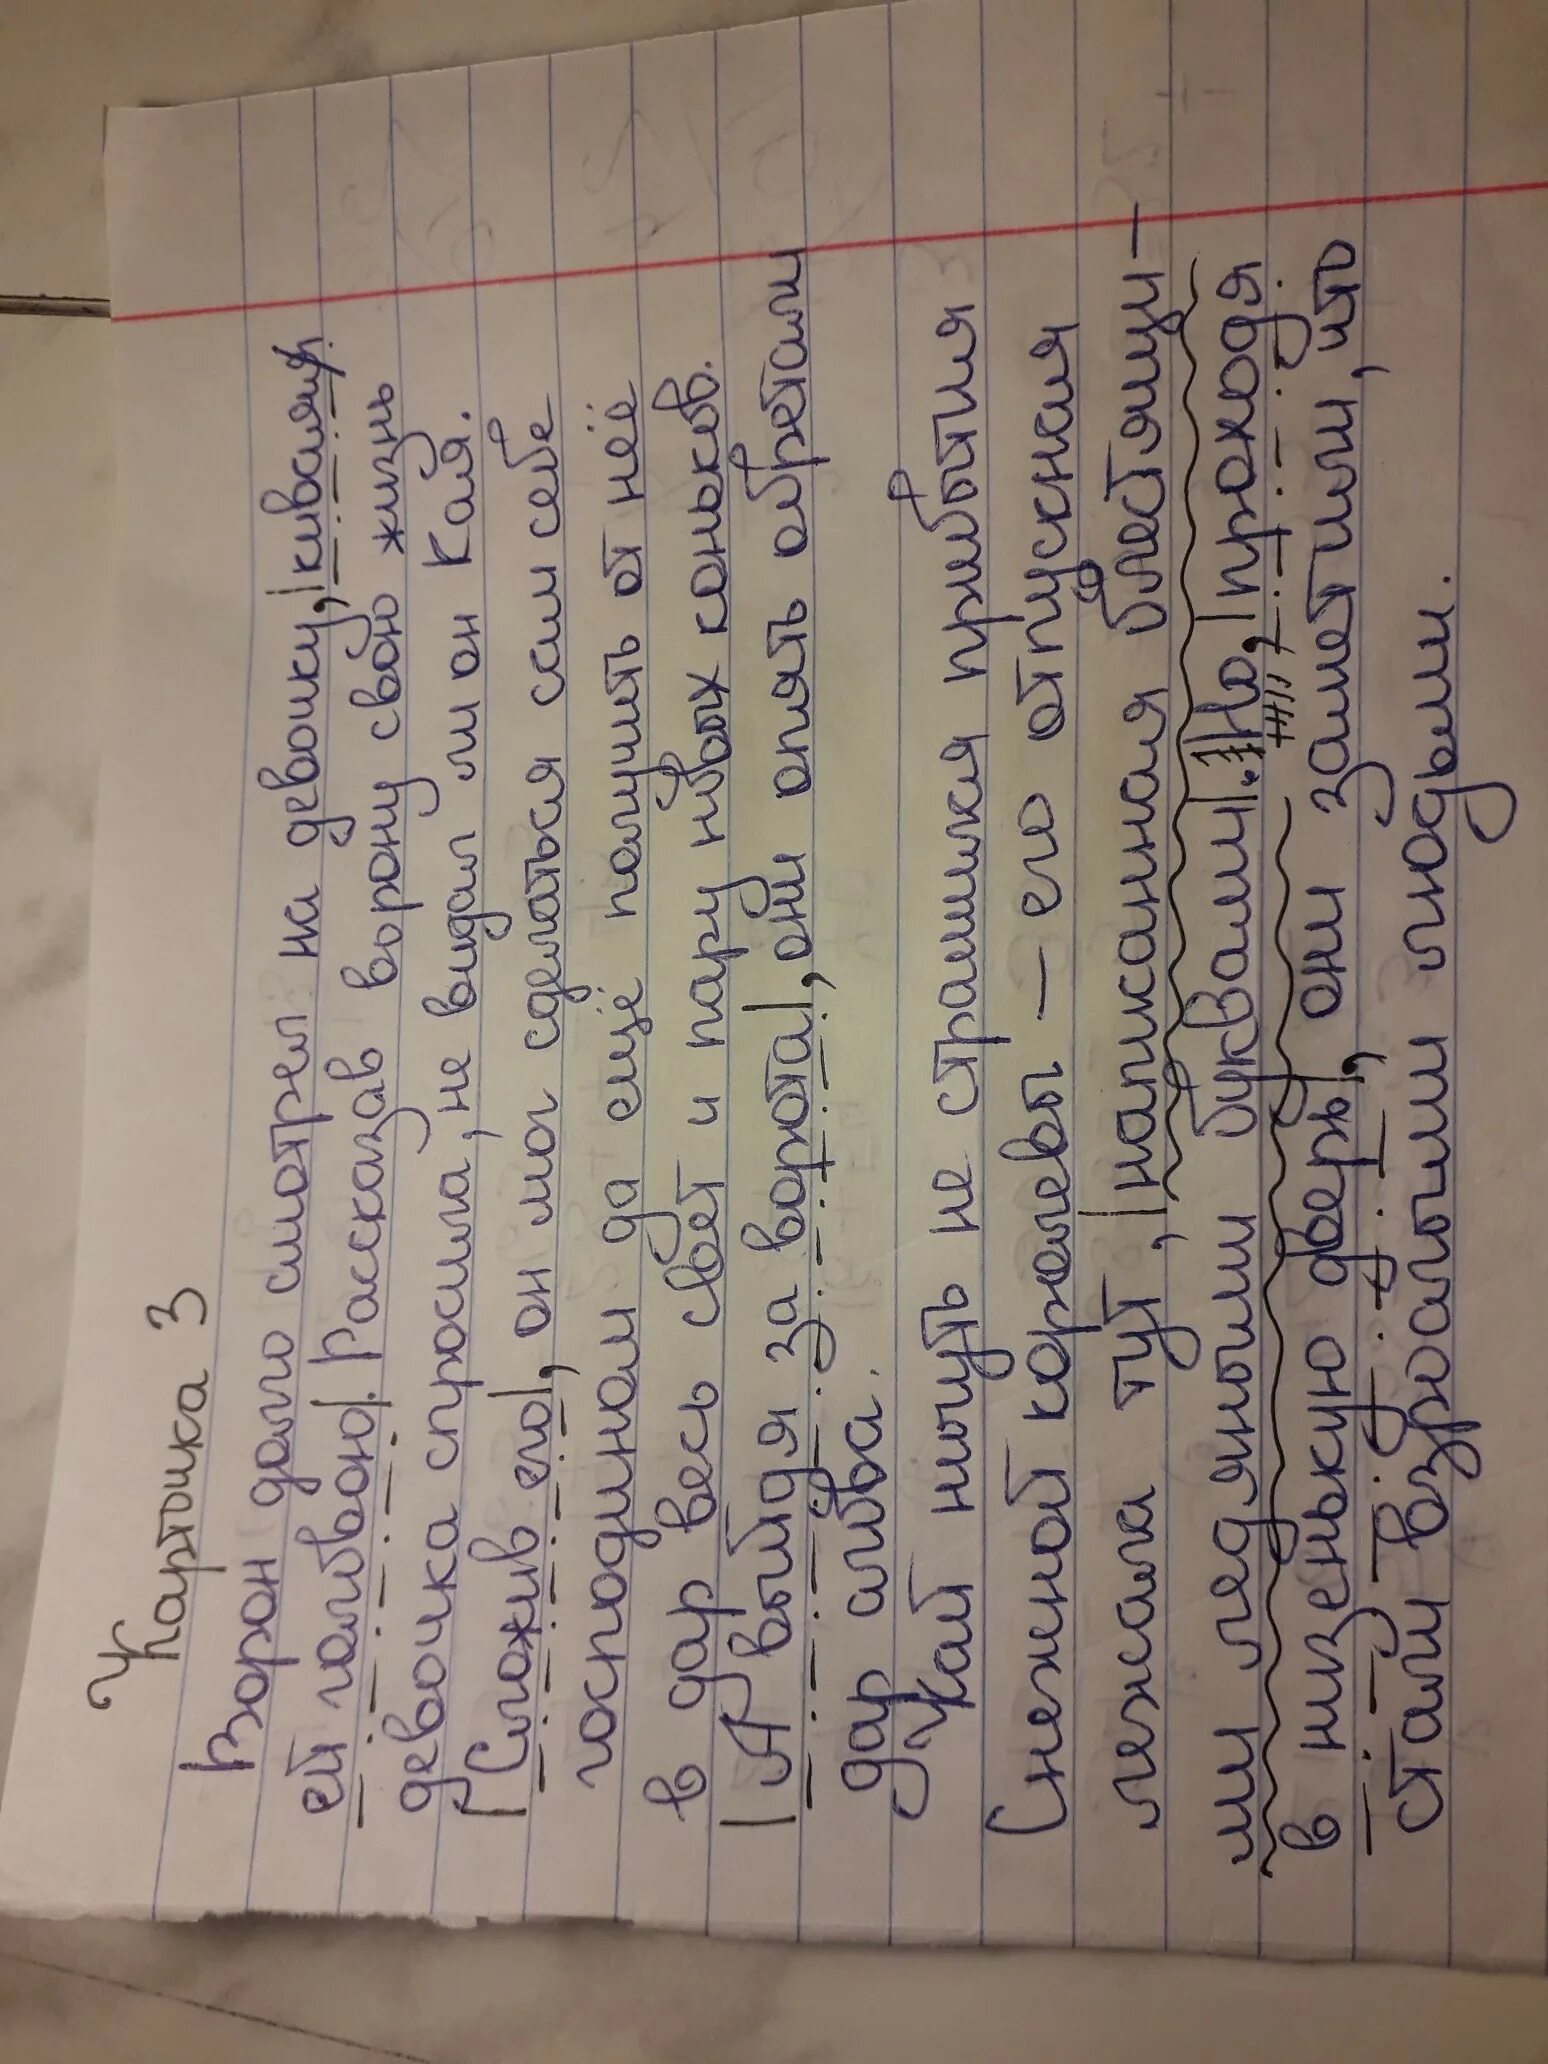 Карточка 3
Ворон долго смотрел на девочку, |кивая
ей головою|. Рассказав ворону свою жизнь
девочка спросила, не видал ли он Кая.
|Сложив его|, он мог сделаться сам себе
господином да ещё получить от неё
в дар весь свет и пару новых коньков.
|А выйдя за ворота|, они опять обретали
дар слова.
Кай ничуть не страшился прибытия
Снежной королевы — его отпускная
лежала тут, |написанная блестящи-
ми ледяными буквами|. Но, |проходя
в низенькую дверь|, они заметили, что
стали взрослыми людьми.